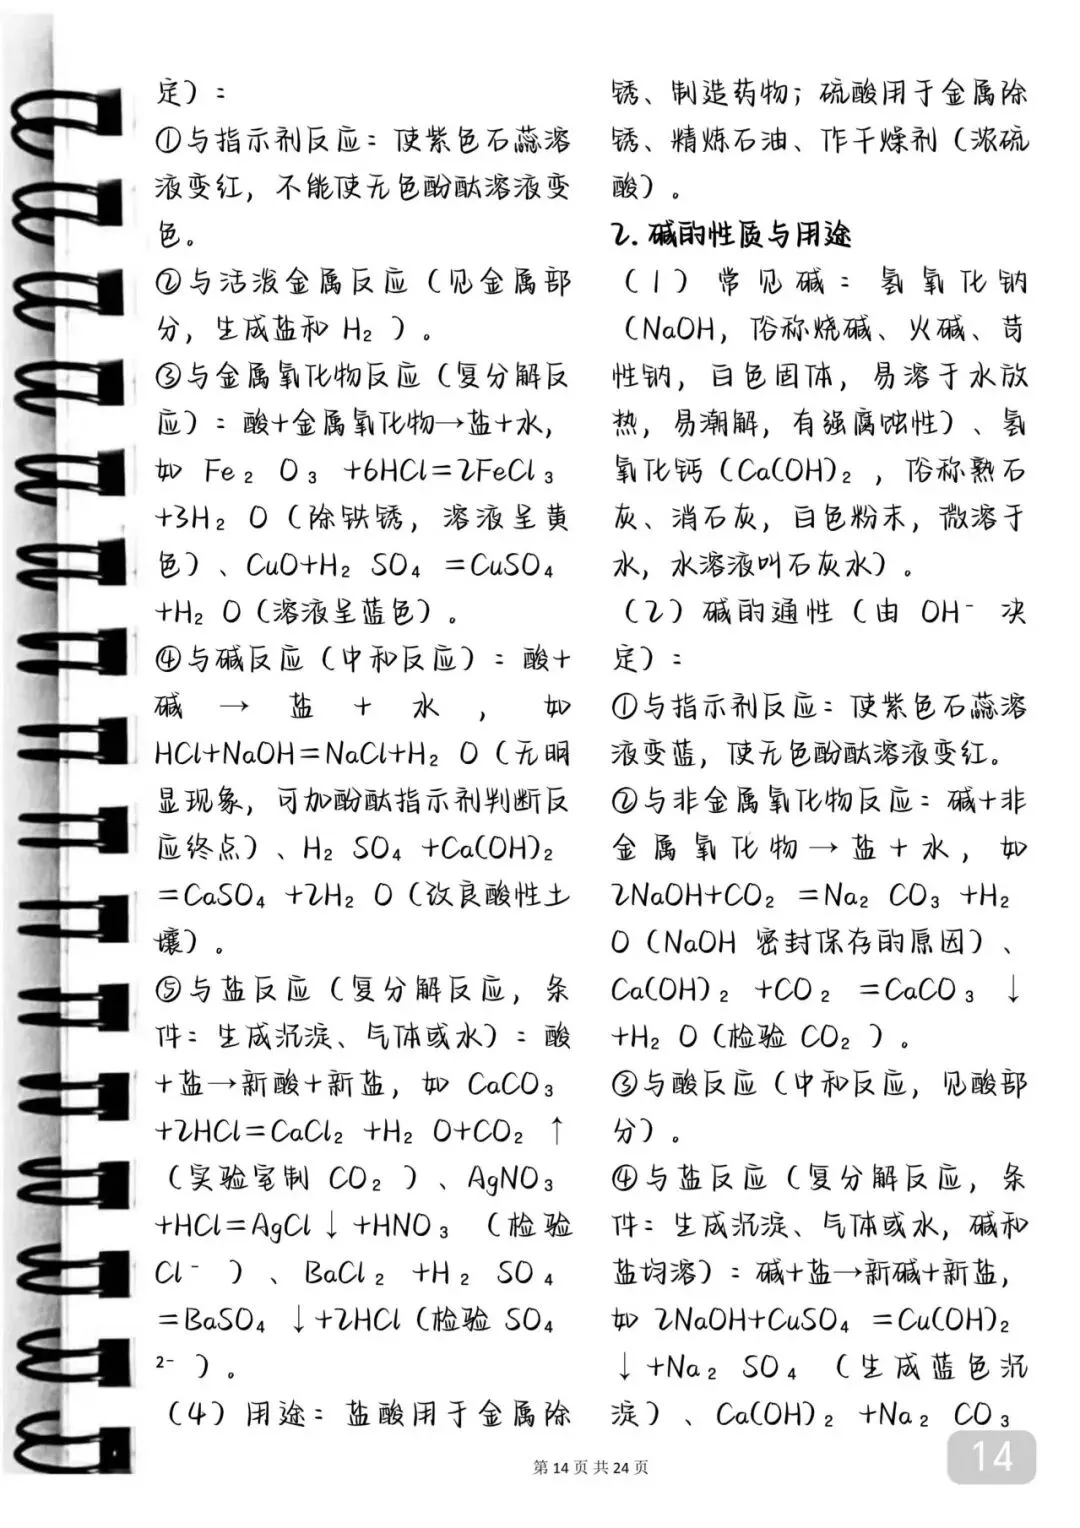 定）：
①与指示剂反应：使紫色石蕊溶
液变红，不能使无色酚酞溶液变
色。
②与活泼金属反应（见金属部
分，生成盐和 H₂ ）。
③与金属氧化物反应（复分解反
应）：酸+金属氧化物→盐+水，
如 Fe₂ O₃ +6HCl=2FeCl₃
+3H₂ O（除铁锈，溶液呈黄
色）、CuO+H₂ SO₄ =CuSO₄
+H₂ O（溶液呈蓝色）。
④与碱反应（中和反应）：酸+
碱 → 盐 + 水 ， 如
HCl+NaOH=NaCl+H₂ O（无明
显现象，可加酚酞指示剂判断反
应终点）、H₂ SO₄ +Ca(OH)₂
=CaSO₄ +2H₂ O（改良酸性土
壤）。
⑤与盐反应（复分解反应，条
件：生成沉淀、气体或水）：酸
+盐→新酸+新盐，如 CaCO₃
+2HCl=CaCl₂ +H₂ O+CO₂ ↑
（实验室制 CO₂ ）、AgNO₃
+HCl=AgCl↓+HNO₃ （检验
Cl⁻ ）、BaCl₂ +H₂ SO₄
=BaSO₄ ↓+2HCl（检验 SO₄
²⁻ ）。
（4）用途：盐酸用于金属除
锈、制造药物；硫酸用于金属除
锈、精炼石油、作干燥剂（浓硫
酸）。
2. 碱的性质与用途
（1）常见碱：氢氧化钠
（NaOH，俗称烧碱、火碱、苛
性钠，白色固体，易溶于水放
热，易潮解，有强腐蚀性）、氢
氧化钙（Ca(OH)₂ ，俗称熟石
灰、消石灰，白色粉末，微溶于
水，水溶液叫石灰水）。
（2）碱的通性（由 OH⁻ 决
定）：
①与指示剂反应：使紫色石蕊溶
液变蓝，使无色酚酞溶液变红。
②与非金属氧化物反应：碱+非
金属氧化物→盐+水，如
2NaOH+CO₂ =Na₂ CO₃ +H₂
O（NaOH 密封保存的原因）、
Ca(OH)₂ +CO₂ =CaCO₃ ↓
+H₂ O（检验 CO₂ ）。
③与酸反应（中和反应，见酸部
分）。
④与盐反应（复分解反应，条
件：生成沉淀、气体或水，碱和
盐均溶）：碱+盐→新碱+新盐，
如 2NaOH+CuSO₄ =Cu(OH)₂
↓+Na₂ SO₄ （生成蓝色沉
淀）、Ca(OH)₂ +Na₂ CO₃
第 14 页 共 24 页
14